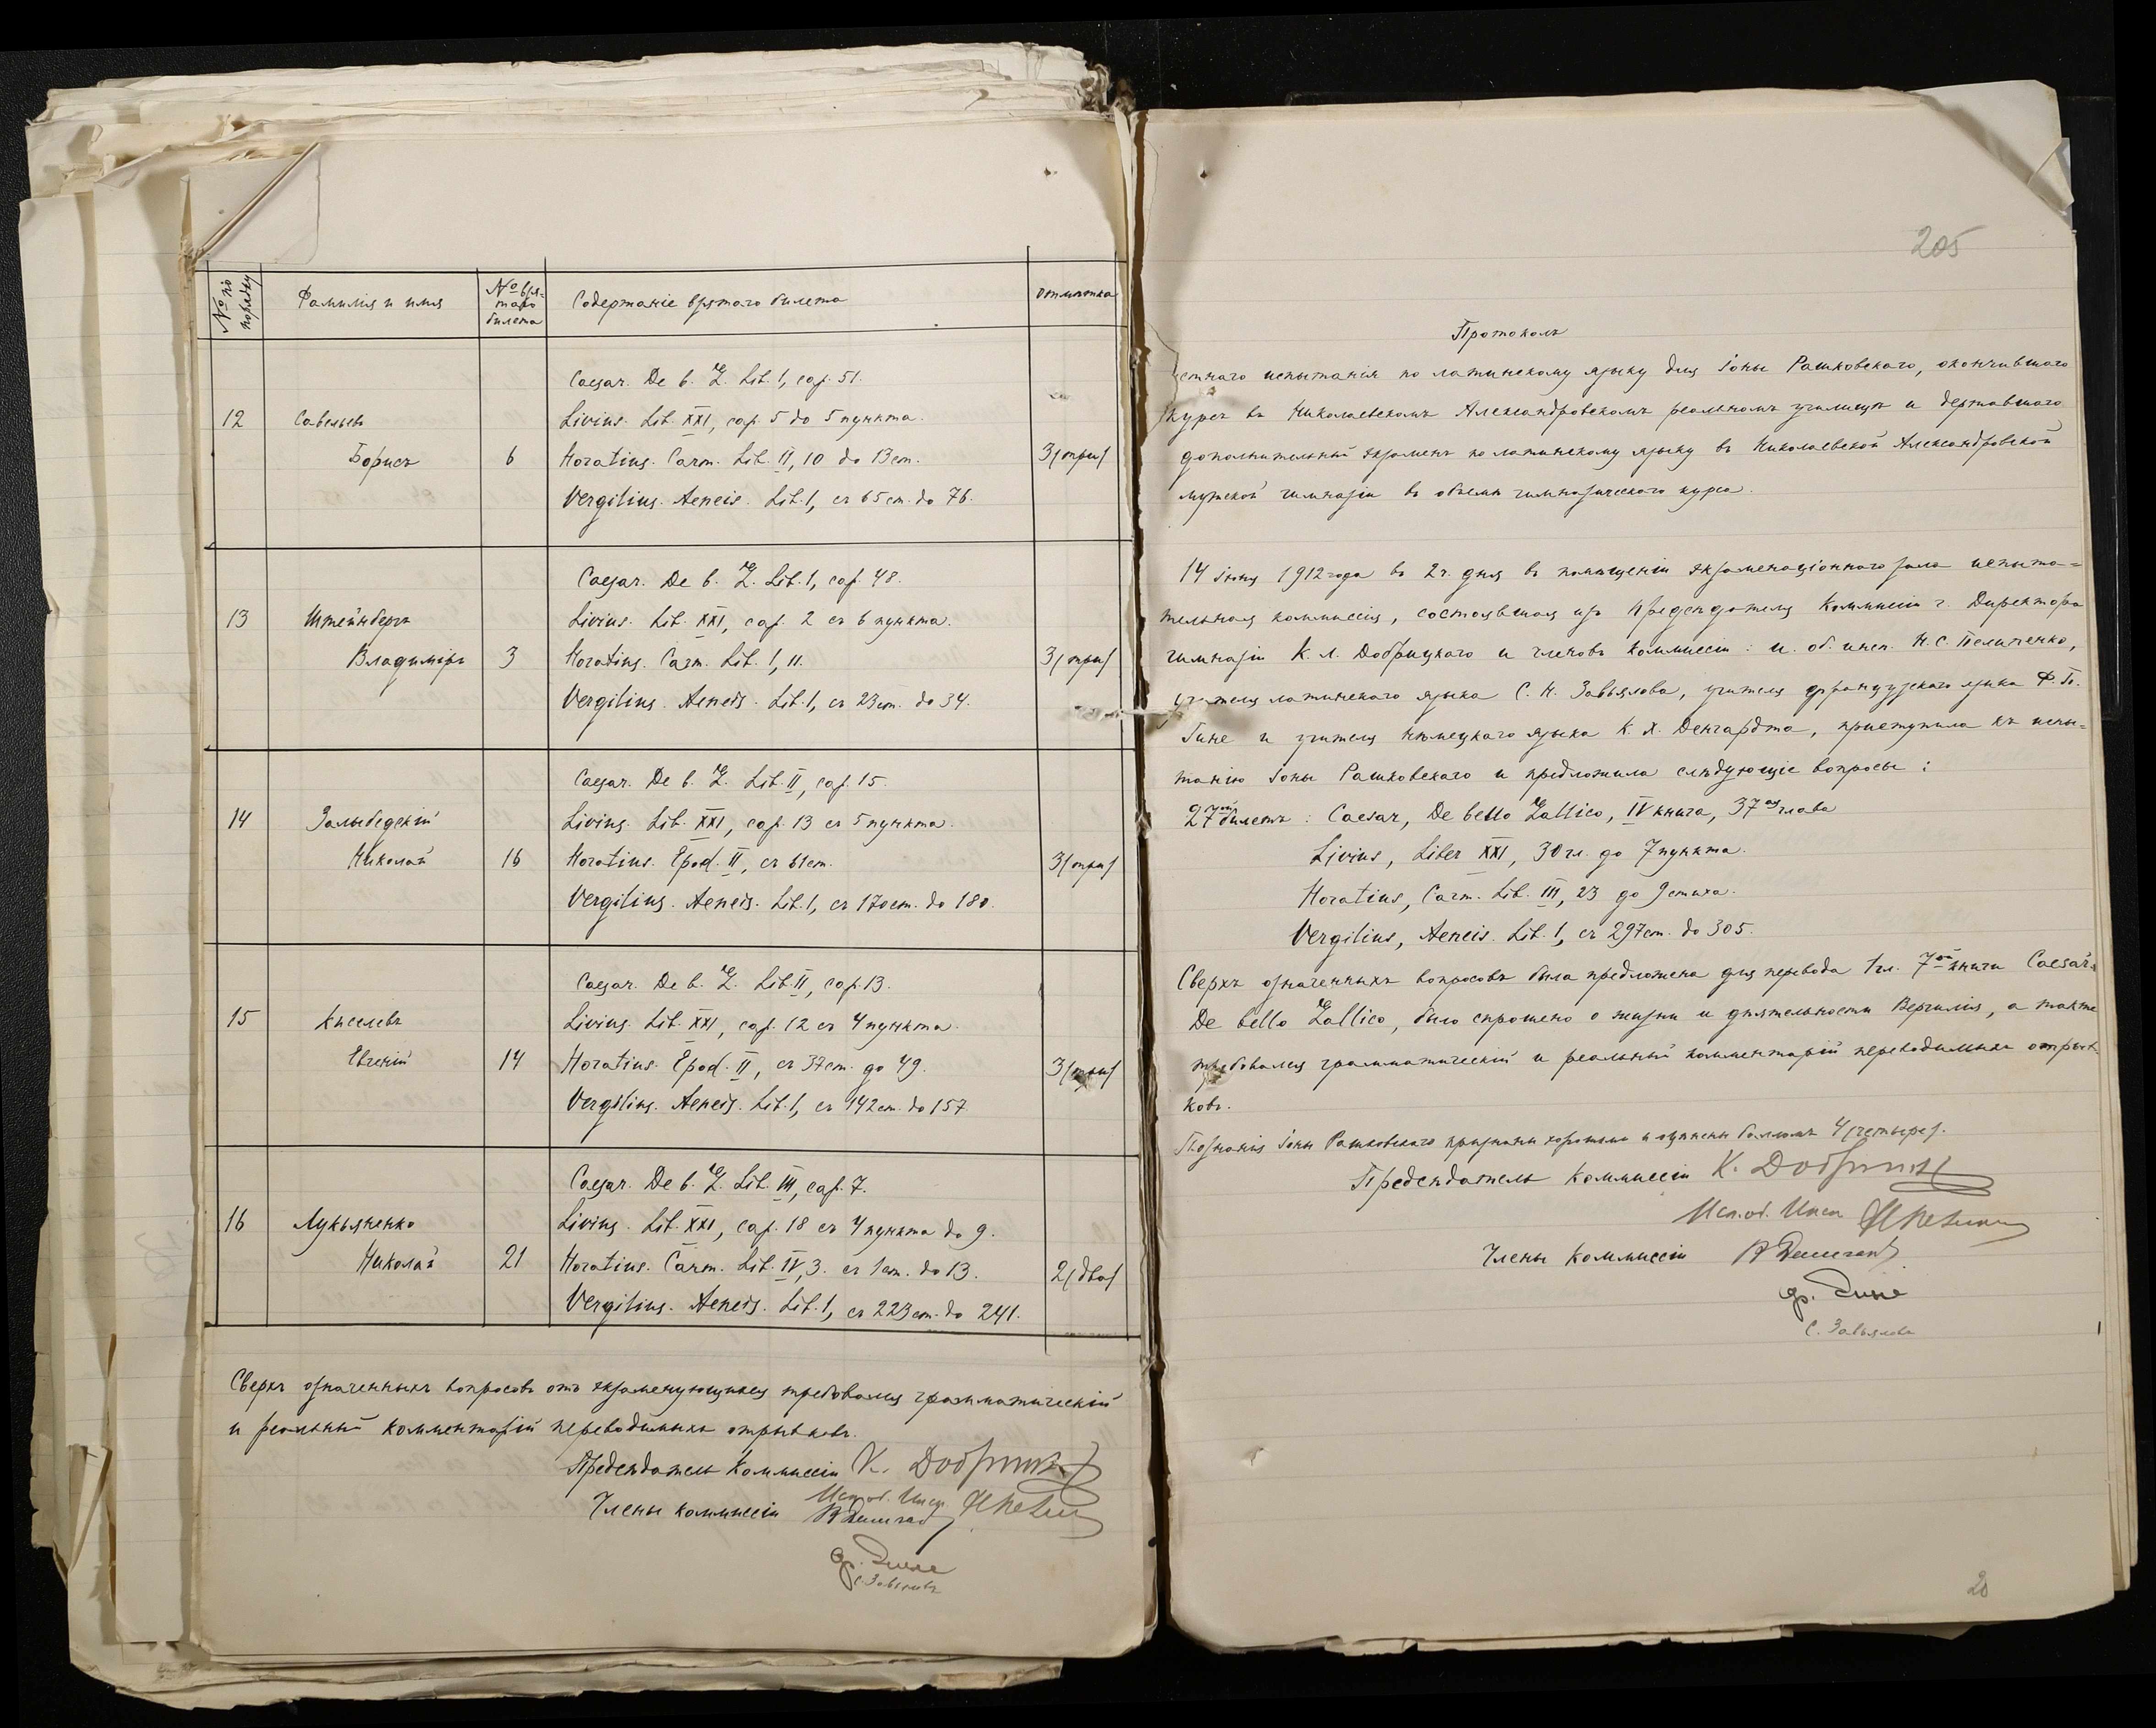 № по порядку
Фамилія и имя
№ взя-
таго
билета
Содержаніе взятаго билета
Отмѣтка
Caesar. De b. G. Lib. I, cap. 51.
12 Савельевъ Livius. Lib. XXI, cap. 5 до 5 пункта.
Борисъ 6 Horatius. Carm. Lib. II, 10 до 13 ст. 3 (три)
Vergilius. Aeneis. Lib. I, съ 65 ст. до 76.
Caesar. De b. G. Lib. I, cap. 48.
13 Штейнбергъ Livius. Lib. XXI, cap. 2 съ 6 пункта.
Владиміръ 3 Horatius. Carm. Lib. I, 11. 3 (три)
Vergilius. Aeneis. Lib. I, съ 23 ст. до 34.
Caesar. De b. G. Lib. II, cap. 15.
14 Livius. Lib. XXI, cap. 13 съ 5 пункта.
Николай 16 Horatius. Epod. II, съ 61 ст. 3 (три)
Vergilius. Aeneis. Lib. I, съ 170 ст. до 180.
Caesar. De b. G. Lib. II, cap. 13.
15 Киселевъ Livius. Lib. XXI, cap. 12 съ 4 пункта.
Евгеній 14 Horatius. Epod. II, съ 37 ст. до 49. 3 (три)
Vergilius. Aeneis. Lib. I, съ 142 ст. до 157.
Caesar. De b. G. Lib. III, cap. 7.
16 Лукьяненко Livius. Lib. XXI, cap. 18 съ 4 пункта до 9.
Николай 21 Horatius. Carm. Lib. IV, 3. съ 1 ст. до 13. 2 (два)
Vergilius. Aeneis. Lib. I, съ 223 ст. до 241.
Сверхъ означенныхъ вопросовъ отъ экзаменующихся требовался грамматическій
и реальный комментарій переводимыхъ отрывковъ.
Предсѣдатель Коммиссіи К. Добрицкій
Исп. об. Инсп.
Члены коммиссіи
Ф. Гине
С. Завьяловъ
205
Протоколъ
устнаго испытанія по латинскому языку для Іоны Рашковскаго, окончившаго
курсъ въ Николаевскомъ Александровскомъ реальномъ училищѣ и державшаго
дополнительный экзаменъ по латинскому языку въ Николаевской Александровской
мужской гимназіи въ объемѣ гимназическаго курса.
14 Іюня 1912 года въ 2 ч. дня въ помѣщеніи экзаменаціоннаго зала испыта=
тельная коммиссія, состоявшая изъ Предсѣдателя Коммиссіи г. Директора
гимназіи К. Л. Добрицкаго и членовъ Коммиссіи: и. об. инсп. Н. С. Пелипенко,
учителя латинскаго языка С. Н. Завьялова, учителя французскаго языка Ф. Ю.
Гине и учителя нѣмецкаго языка К. Х. Денгардта, приступила къ испы=
танію Іоны Рашковскаго и предложила слѣдующіе вопросы:
27ой билетъ: Caesar, De bello Gallico, IV книга, 37ая глава
Livius, Liber XXI, 30 гл. до 7 пункта.
Horatius, Carm. Lib. III, 23 до 9 стиха.
Vergilius, Aeneis. Lib. I, съ 297 ст. до 305.
Сверхъ означенныхъ вопросовъ была предложена для перевода 1 гл. 7ой книги Caesar'a
De bello Gallico, было спрошено о жизни и дѣятельности Вергилія, а также
требовался грамматическій и реальный комментарій переводимыхъ отрыв=
ковъ.
Познанія Іоны Рашковскаго признаны хорошими и оцѣнены балломъ 4 (четыре).
Предсѣдатель Коммиссіи К. Добрицкій
Исп. об. Инсп.
Члены Коммиссіи
Ф. Гине
С. Завьяловъ